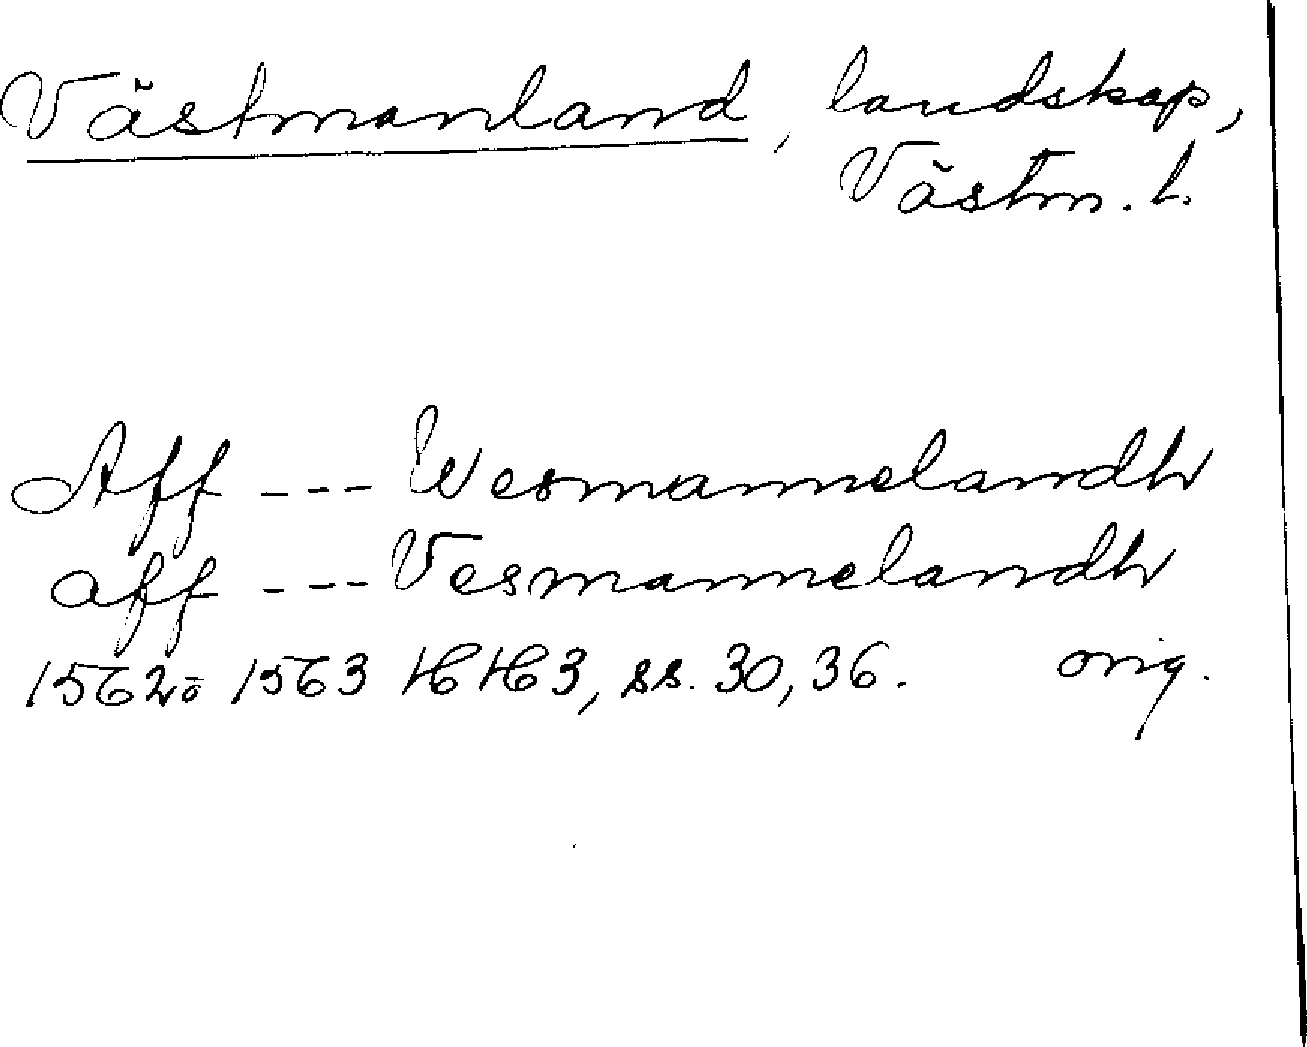 Västmanland, landskap,
Västm. l.
Aff --- Wesmannelandh
aff --- Vesmannelandh
1562 o 1563 HH 3, ss. 30, 36. orig.